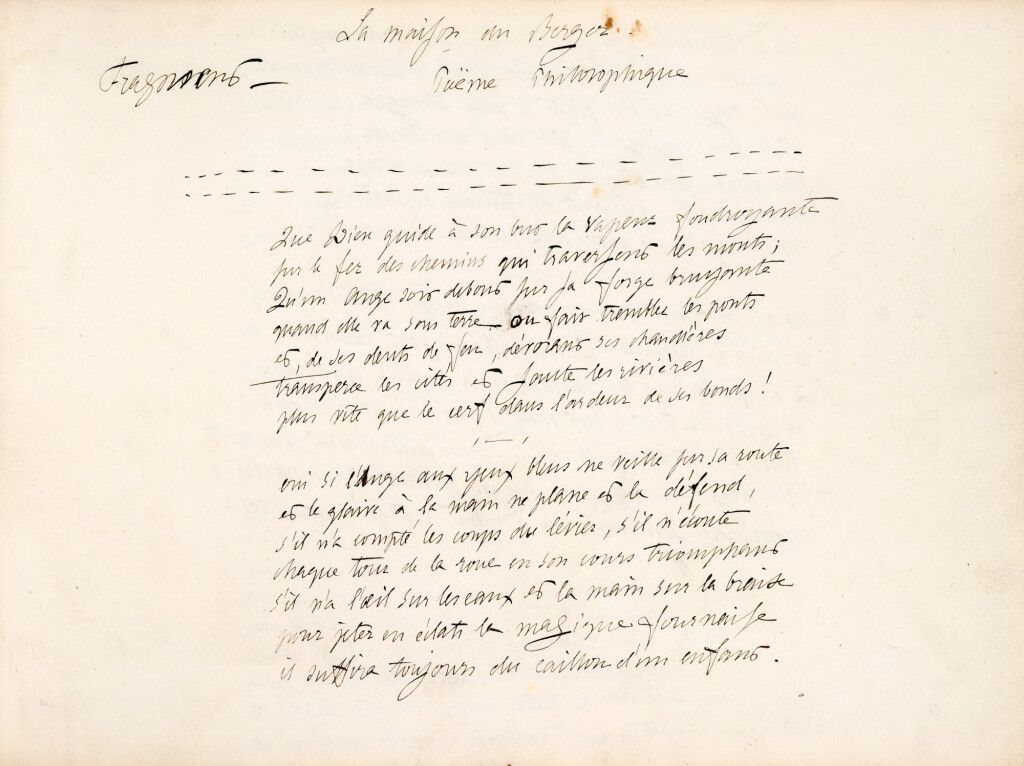 La maison du Berger.
Fragmens —
Poëme Philosophique
Que Dieu guide à son but la vapeur foudroyante
sur le fer des chemins qui traversent les monts ;
Qu'un Ange soit debout sur sa forge bruyante
quand elle va sous terre ou fait trembler les ponts
et, de ses dents de feu, dévorant ses chaudières
transperce les cités et saute les rivières
plus vite que le cerf dans l'ardeur de ses bonds !
oui si l'Ange aux yeux bleus ne veille sur sa route
et le glaive à la main ne plane et la défend,
s'il n'a compté les coups du lévier, s'il n'écoute
chaque tour de la roue en son cours triomphant
s'il n'a l'œil sur les eaux et la main sur la braise
pour jeter en éclats la magique fournaise
il suffira toujours du caillou d'un enfant.